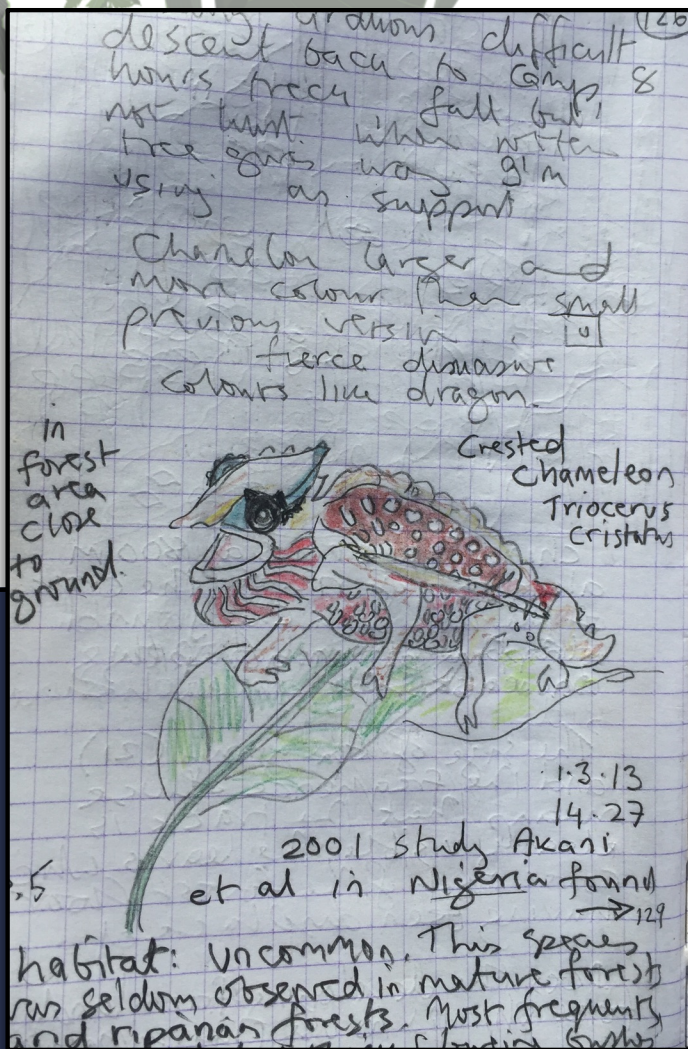 126
difficult
descent back to camp 8
hours treck fall but
not hurt when
tree was
using as support
Chameleon larger and
more colour than small
previous version
fierce dissuasive
colours like dragon.
in
forest
area
close
to
ground.
Crested
Chameleon
Triocerus
Cristatus
1.3.13
14.27
2001 study Akani
.5
et al in Nigeria found
→129
habitat: uncommon. This species
was seldom observed in mature forests
and riparian forests. Most frequently